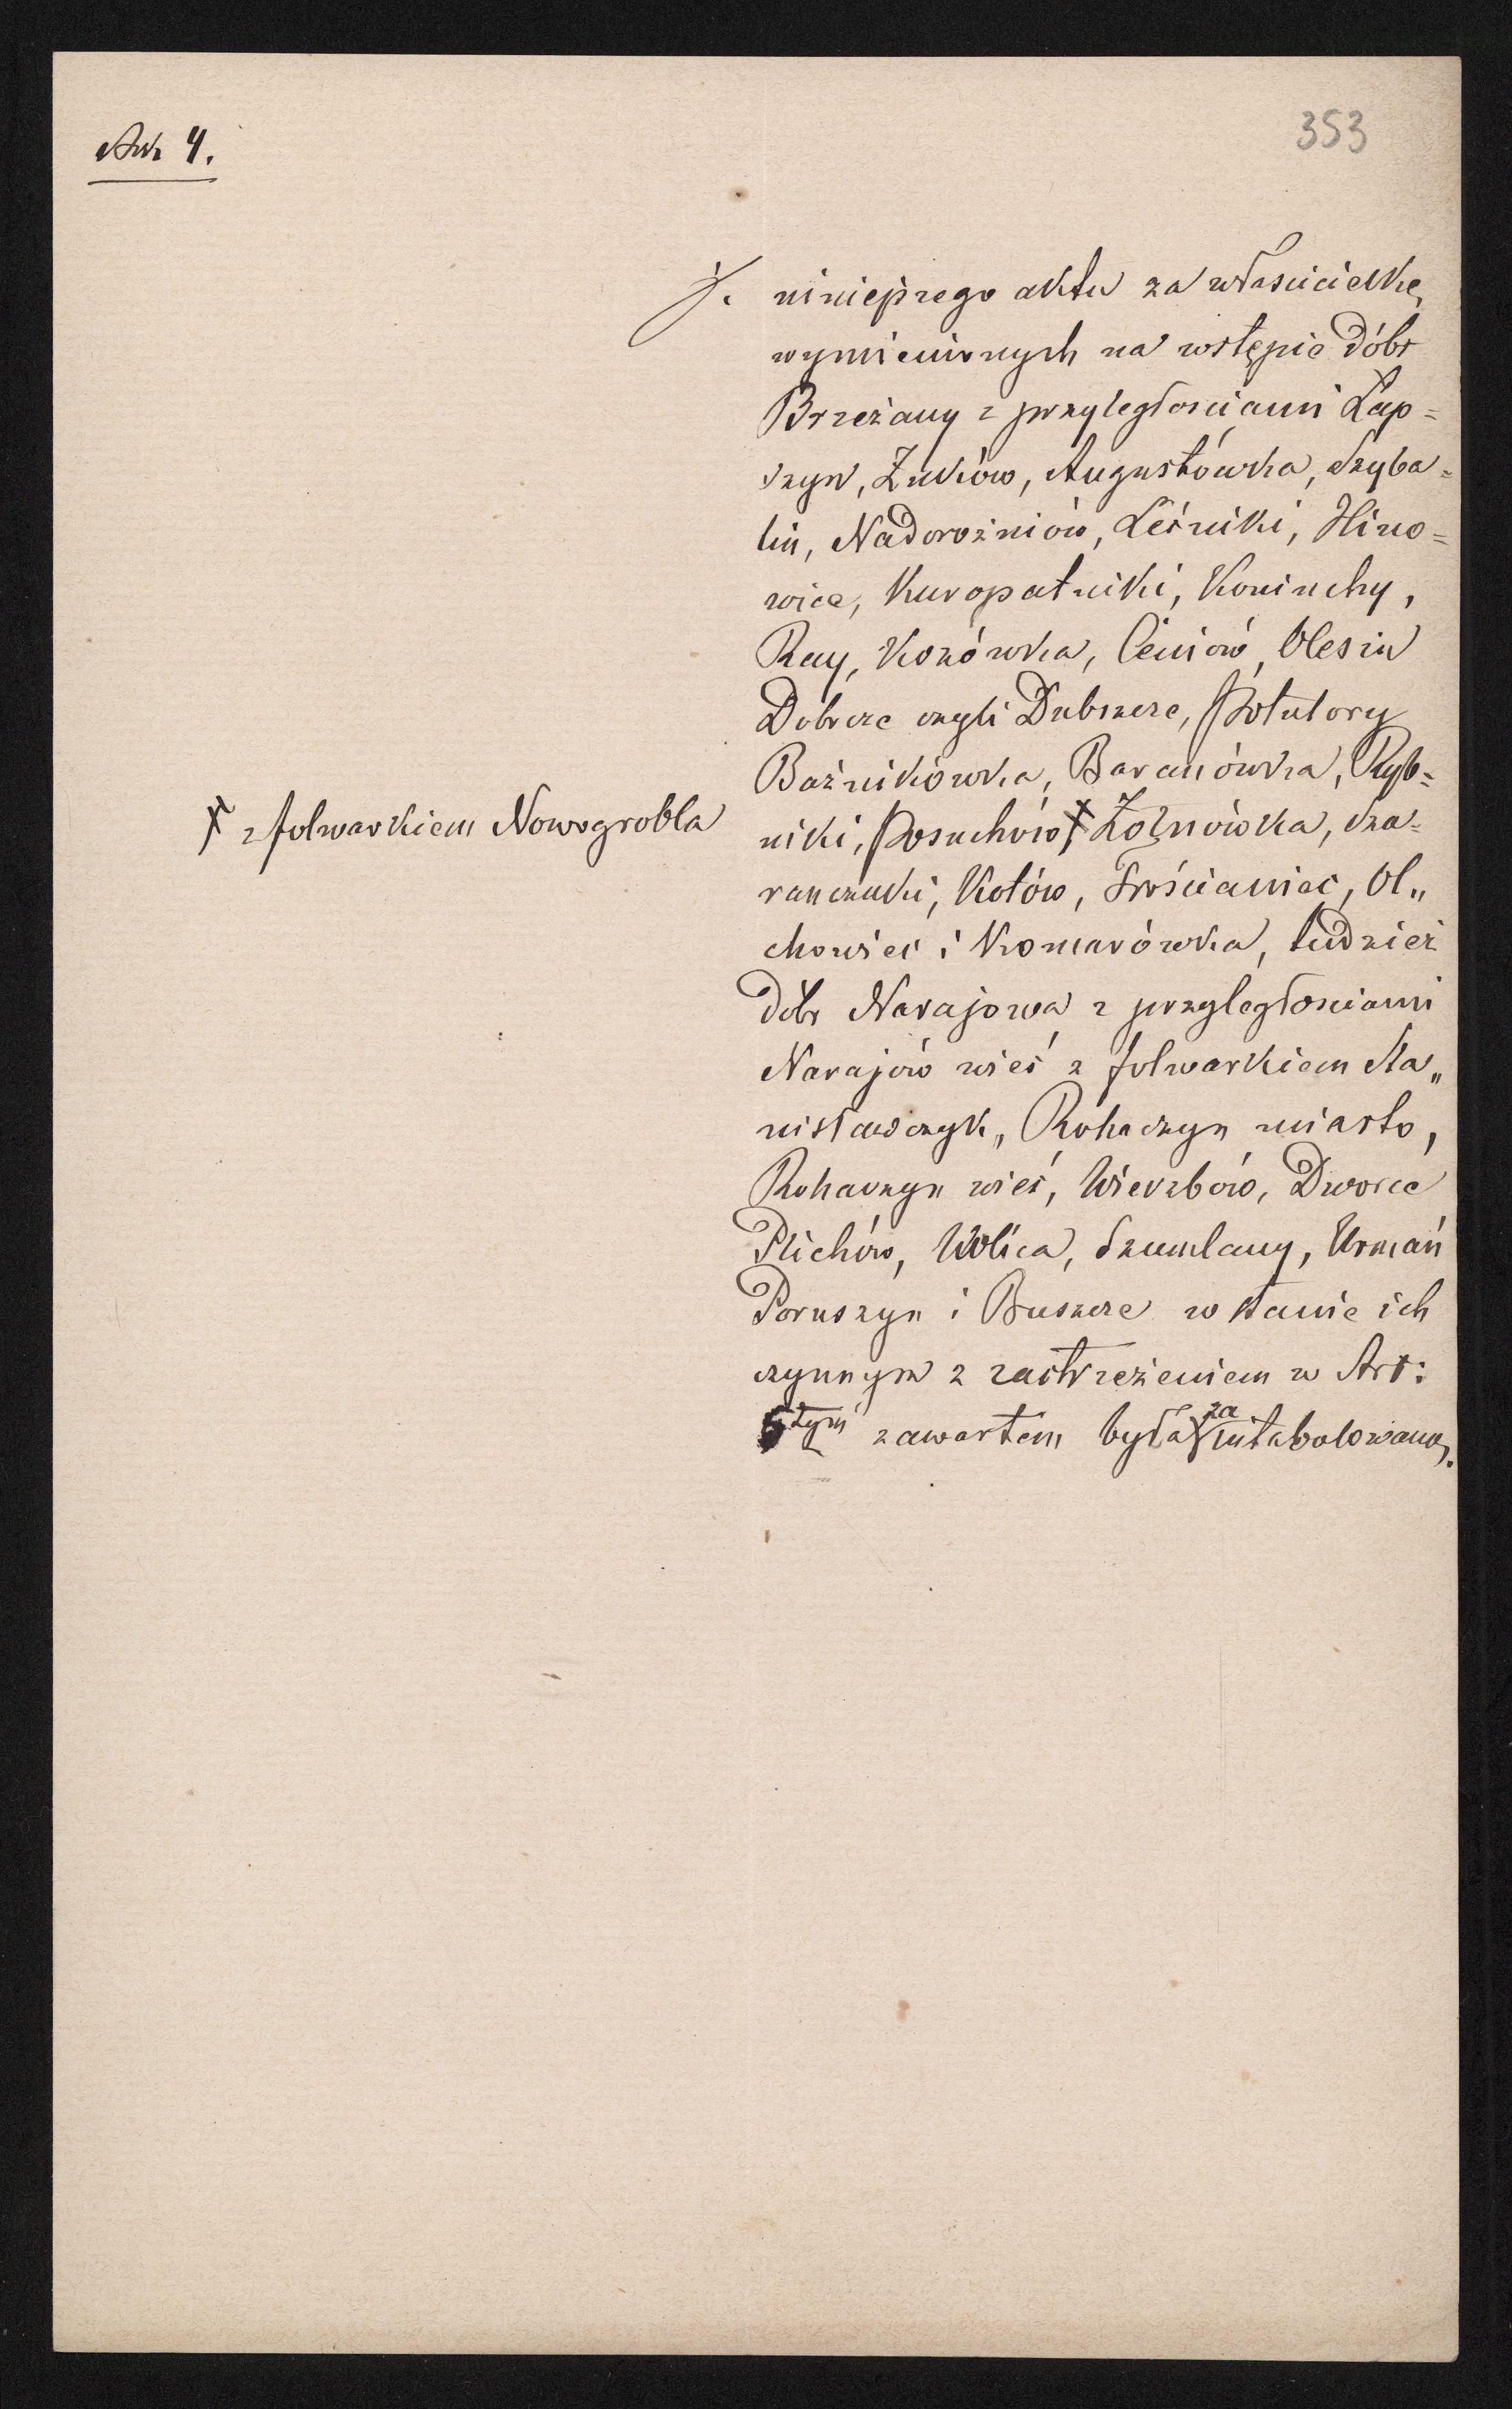 Ark 4.
353
j. niniejszego aktu za właścicielkę
wymienionych na wstępie dóbr
Brzeżany z przyległościami Łap=
szyn, Żuków, Augustówka, Szyba=
lin, Nadorożniów, Leśniki, Hino=
wice, Kuropatniki, Koniuchy,
Ray, Kozówka, Ceniów, Olesin
Dobrcze czyli Dubszcze, Potutory
Baźnikówka, Baranówka, Ryb=
niki, Posuchów, Żołnówka, Sza=
x z folwarkiem Nowogrobla
ranczuki, Kotów, Trościaniec, Ol„
chowiec i Komarówka, tudzież
dóbr Narajowa z przyległościami
Narajów wieś z folwarkiem Sta„
nisławczyk, Rohaczyn miasto,
Rohaczyn wieś, Wierzbów, Dworce
Plichów, Wolica, Szumlany, Urmań
Poruszyn i Buszcze w stanie ich
czynnym z zastrzeżeniem w Art:
5tym zawartem była zaintabulowaną.